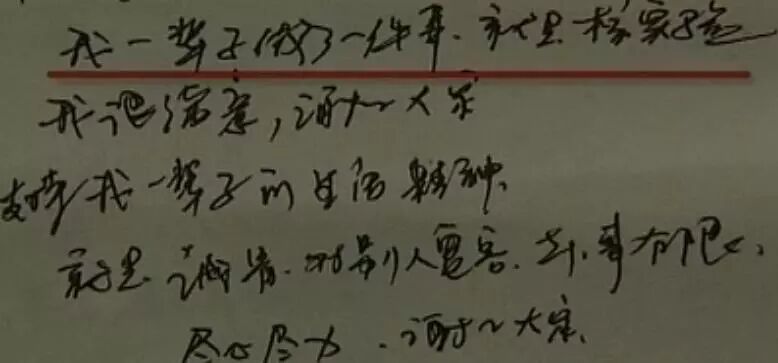 我一辈子做了一件事.就是核实验
我很满意,谢谢大家
支持我一辈子的生活精神.
就是诚肯.对别人宽容.去.事有限.
尽心尽力.谢谢大家.